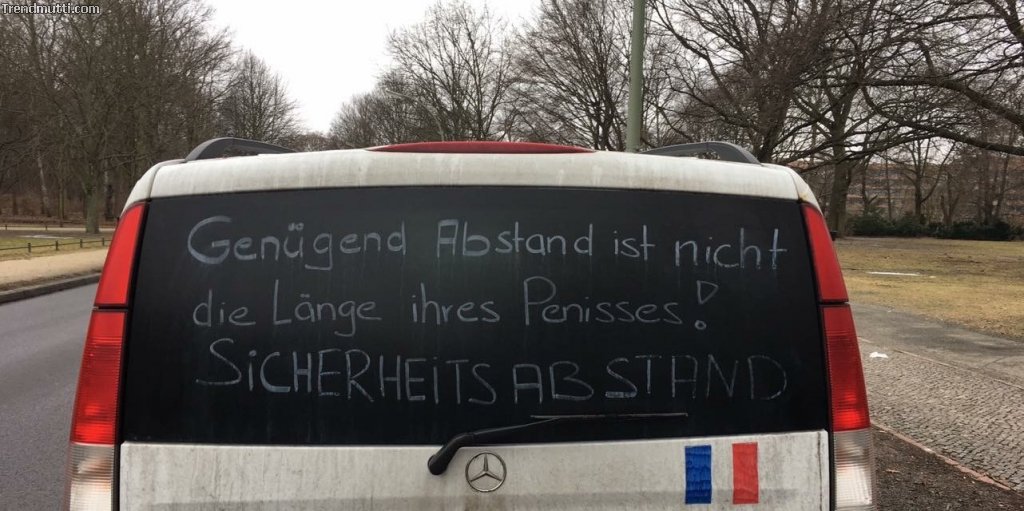 Trendmutti.com
Genügend Abstand ist nicht
die Länge ihres Penisses!
SiCHERHEiTSABSTAND